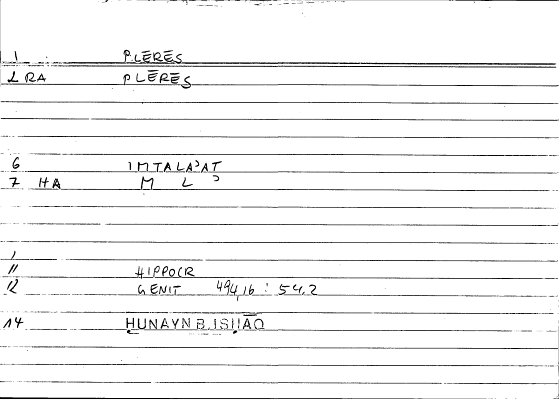 1 PLĒRĒS
2 RA PLĒRĒS
6 IMTALAʾAT
7 HA M L ʾ
11 HIPPOCR
12 GENIT 494,16 : 54.2
14 ḤUNAYN B. ISḤĀQ